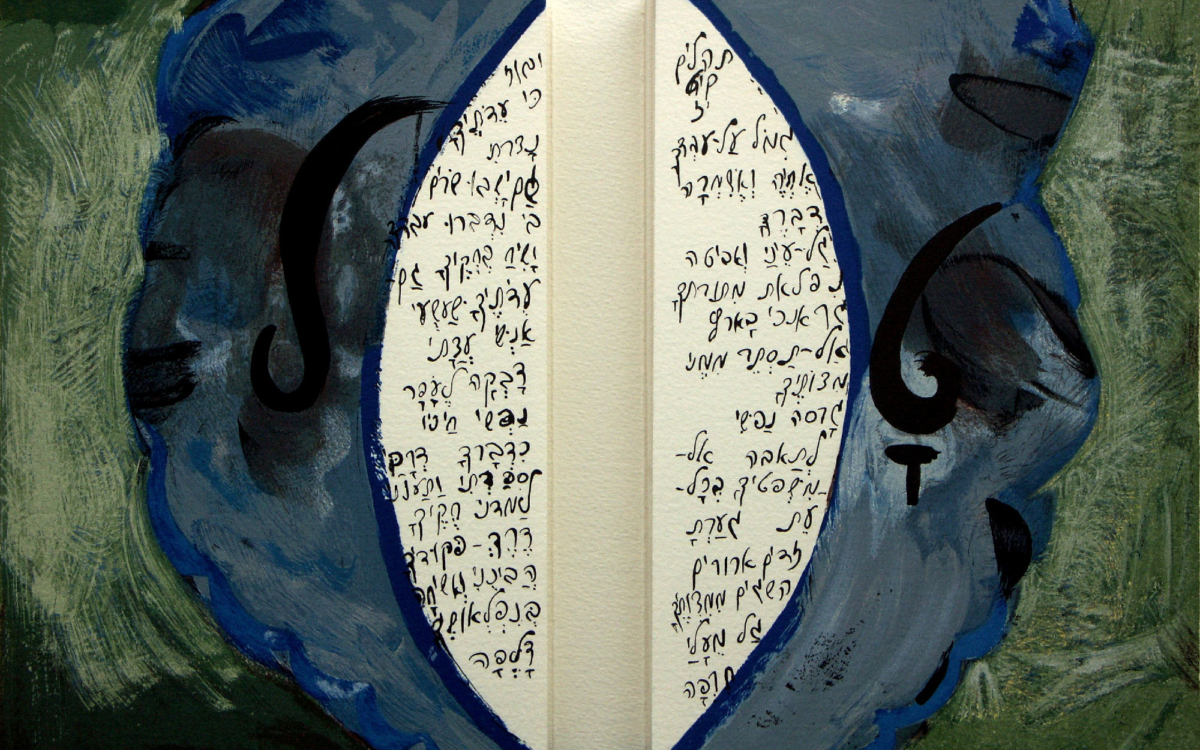 תהלים
קיט
יז
גְּמֹל עַל-עַבְדְּךָ
אֶחְיֶה וְאֶשְׁמְרָה
דְבָרֶךָ
גַּל-עֵינַי וְאַבִּיטָה
נִפְלָאוֹת מִתּוֹרָתֶךָ
גֵּר אָנֹכִי בָאָרֶץ
אַל-תַּסְתֵּר מִמֶּנִּי
מִצְוֹתֶיךָ
גָּרְסָה נַפְשִׁי
לְתַאֲבָה אֶל-
מִשְׁפָּטֶיךָ בְכָל-
עֵת גָּעַרְתָּ
זֵדִים אֲרוּרִים
הַשֹּׁגִים מִמִּצְוֹתֶיךָ
גַּל מֵעָלַי
חֶרְפָּה
וָבוּז
כִּי עֵדֹתֶיךָ
נָצָרְתִּי
גַּם יָשְׁבוּ שָׂרִים
בִּי נִדְבָּרוּ עַבְדְּךָ
יָשִׂיחַ בְּחֻקֶּיךָ גַּם
עֵדֹתֶיךָ שַׁעֲשֻׁעָי
אַנְשֵׁי עֲצָתִי
דָּבְקָה לֶעָפָר
נַפְשִׁי חַיֵּנִי
כִּדְבָרֶךָ דְּרָכַי
סִפַּרְתִּי וַתַּעֲנֵנִי
לַמְּדֵנִי חֻקֶּיךָ
דֶּרֶךְ-פִּקּוּדֶיךָ
הֲבִינֵנִי וְאָשִׂיחָה
בְּנִפְלְאוֹתֶיךָ
דָּלְפָה